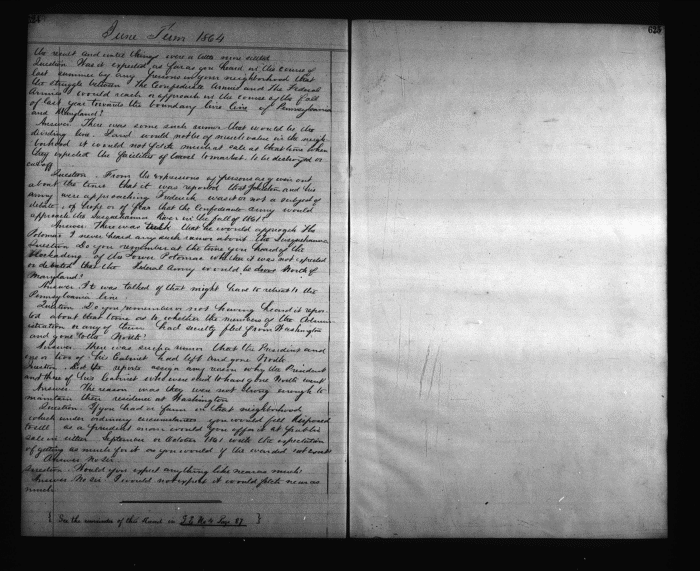 624
June Term 1864
its result and until things were a little more settled
Question. Was it expected as far as you heard in the course of
last summer by any persons in your neighborhood that
the struggle between the Confederate Armies and the Federal
Armies would reach or approach in the course of the fall
of last year towards the boundary line line of Pennsylvania
and Maryland?
Answer. There was some such rumor that would be the
dividing line. Land would not be of much value in the neigh
borhood it would not fetch much at sale at that time when
they expected the facilities of travel to market to be destroyed or
cut off
Question. From the expressions of persons as given out
about the time that it was reported that Johnston and his
army were approaching Frederick was it or not a subject of
debate, of hope or of fear that the Confederate army would
approach the Susquehanna River in the fall of 1861?
Answer. There was that he would approach the
Potomac I never heard any such rumor about the Susquehanna
Question Do you remember at the time you heard of the
blockading of the Lower Potomac whether it was not expected
or debated that the Federal Army would be North of
Maryland?
Answer. It was talked of that might had to retreat to the
Pennsylvania line.
Question. Do you remember or not having heard it repor
ted about that time as to whether the members of the Admin
istration or any of them had secretly fled from Washington
and gone to the North?
Answer. There was such a rumor that the President and
one or two of his Cabinet had left and gone North
Question. Did the reports assign any reason why the President
and those of his Cabinet who were said to have gone North went
Answer The reason was they were not strong enough to
maintain their residence at Washington
Question. If you had a farm in that neighborhood
which under ordinary circumstances you would feel disposed
to sell as a prudent man would you offer it at public
sale in either September or October 1861 with the expectation
of getting as much for it as you would if the war did not exist
Answer. No sir.
Question. Would you expect anything like near as much?
Answer No sir. I would not expect it would fetch near as
much.
{ See the remainder of this Record in J.J. No 4 Page 87 }
625